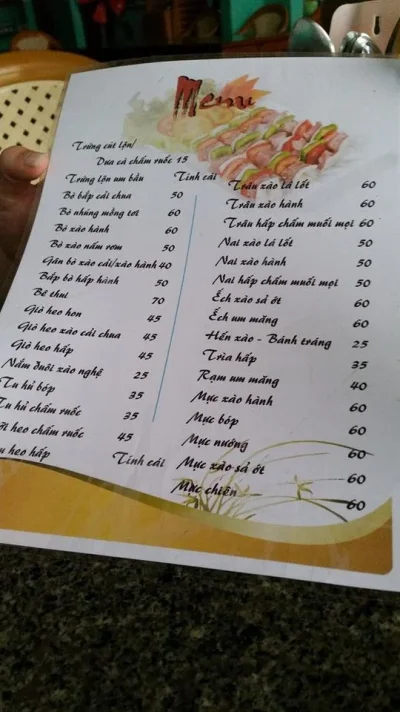 Menu
Trứng cút lộn/
Dưa cà chấm ruốc 15
Trứng lộn um bầu Tính cái
Bò bắp cải chua 50
Bò nhúng mồng tơi 60
Bò xào hành 60
Bò xào nấm rơm 50
Gân bò xào cải/xào hành 40
Bắp bò hấp hành 50
Bê thui 70
Giò heo hon 45
Giò heo xào cải chua 45
Giò heo hấp 45
Nầm đuôi xào nghệ 25
Tu hú bóp 35
Tu hú chấm ruốc 35
heo chấm ruốc 45
heo hấp Tính cái
Trâu xào lá lốt 60
Trâu xào hành 60
Trâu hấp chấm muối mọi 60
Nai xào lá lốt 50
Nai xào hành 50
Nai hấp chấm muối mọi 50
Ếch xào sả ớt 60
Ếch um măng 60
Hến xào - Bánh tráng 25
Trìa hấp 35
Rạm um măng 40
Mực xào hành 60
Mực bóp 60
Mực nướng 60
Mực xào sả ớt 60
Mực chiên 60